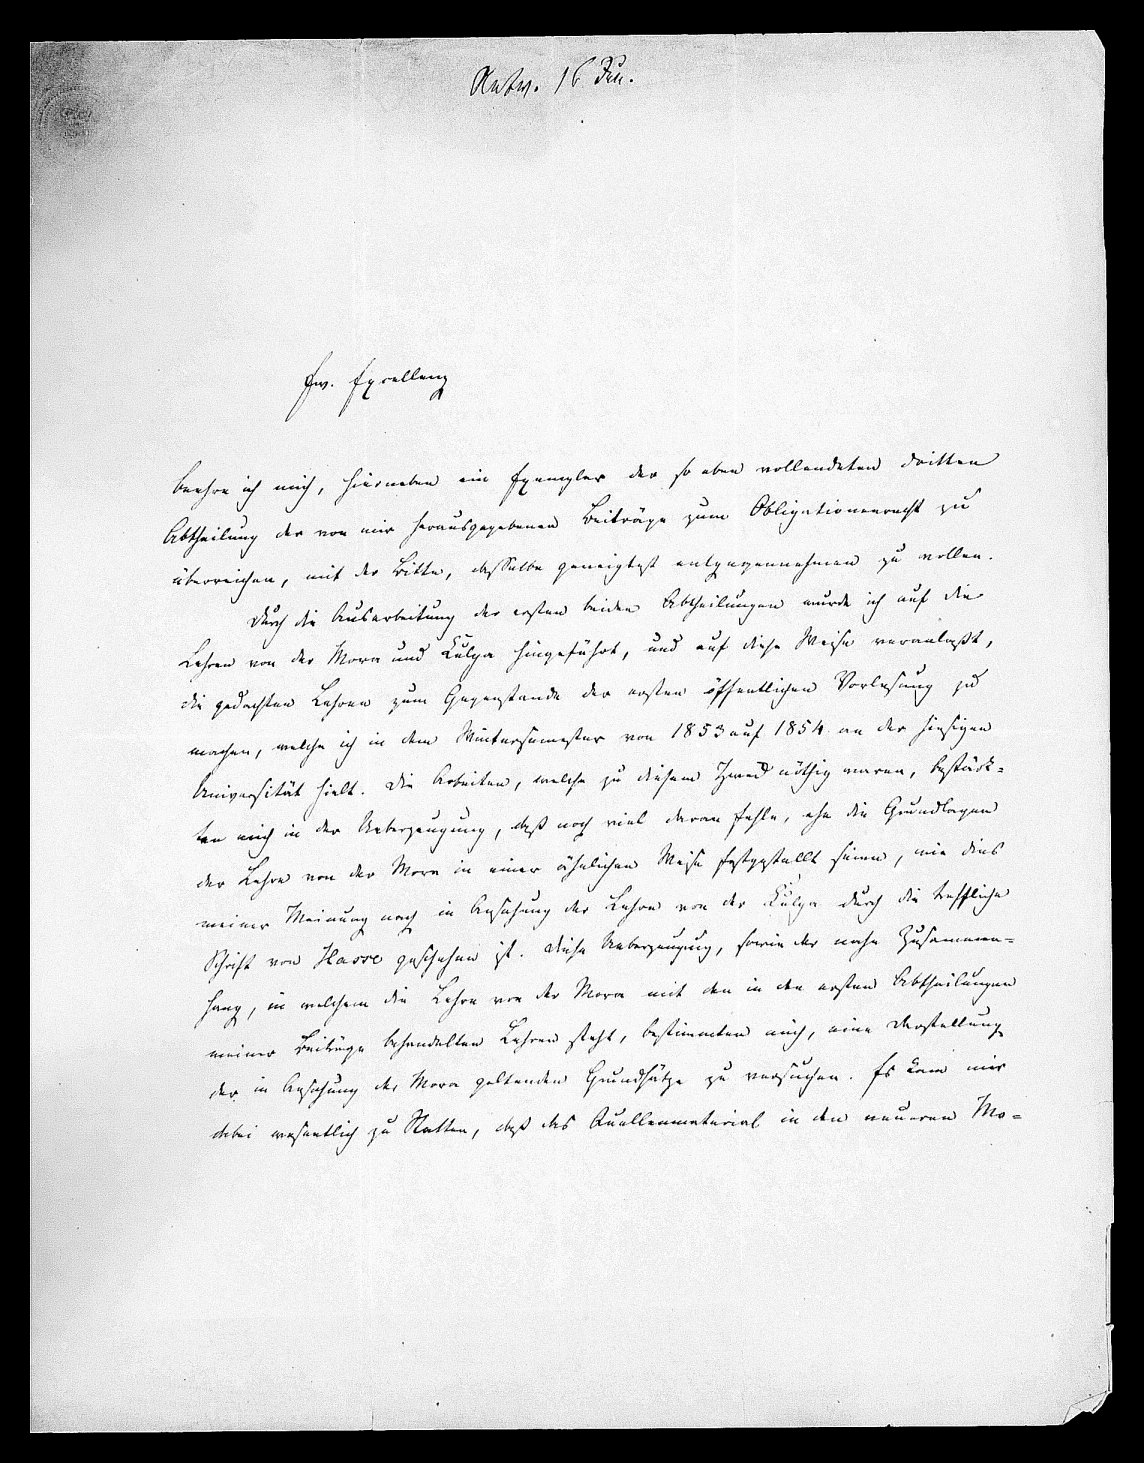 Antw. 16 Jun.
Ew. Excellenz
beehre ich mich, hierneben ein Exemplar der so eben vollendeten dritten
Abtheilung der von mir herausgegebenen Beiträge zum Obligationenrecht zu
überreichen, mit der Bitte, dasselbe geneigtest entgegennehmen zu wollen.
Durch die Ausarbeitung der ersten beiden Abtheilungen wurde ich auf die
Lehren von der Mora und Culpa hingeführt, und auf diese Weise veranlaßt,
die gedachten Lehren zum Gegenstande der ersten öffentlichen Vorlesung zu
machen, welche ich in dem Wintersemester von 1853 auf 1854 an der hiesigen
Universität hielt. Die Arbeiten, welche zu diesem Zweck nöthig waren, bestärk-
ten mich in der Ueberzeugung, daß noch viel daran fehle, ehe die Grundlagen
der Lehre von der Mora in einer ähnlichen Weise festgestellt seien, wie dies
meiner Meinung nach in Ansehung der Lehre von der Culpa durch die treffliche
Schrift von Hasse geschehen ist. Diese Ueberzeugung, sowie der nahe Zusammen-
hang, in welchem die Lehre von der Mora mit den in den ersten Abtheilungen
meiner Beiträge behandelten Lehren steht, bestimmten mich, eine Darstellung
der in Ansehung der Mora geltenden Grundsätze zu versuchen. Es kam mir
dabei wesentlich zu Statten, daß das Quellenmaterial in den neueren Mo-